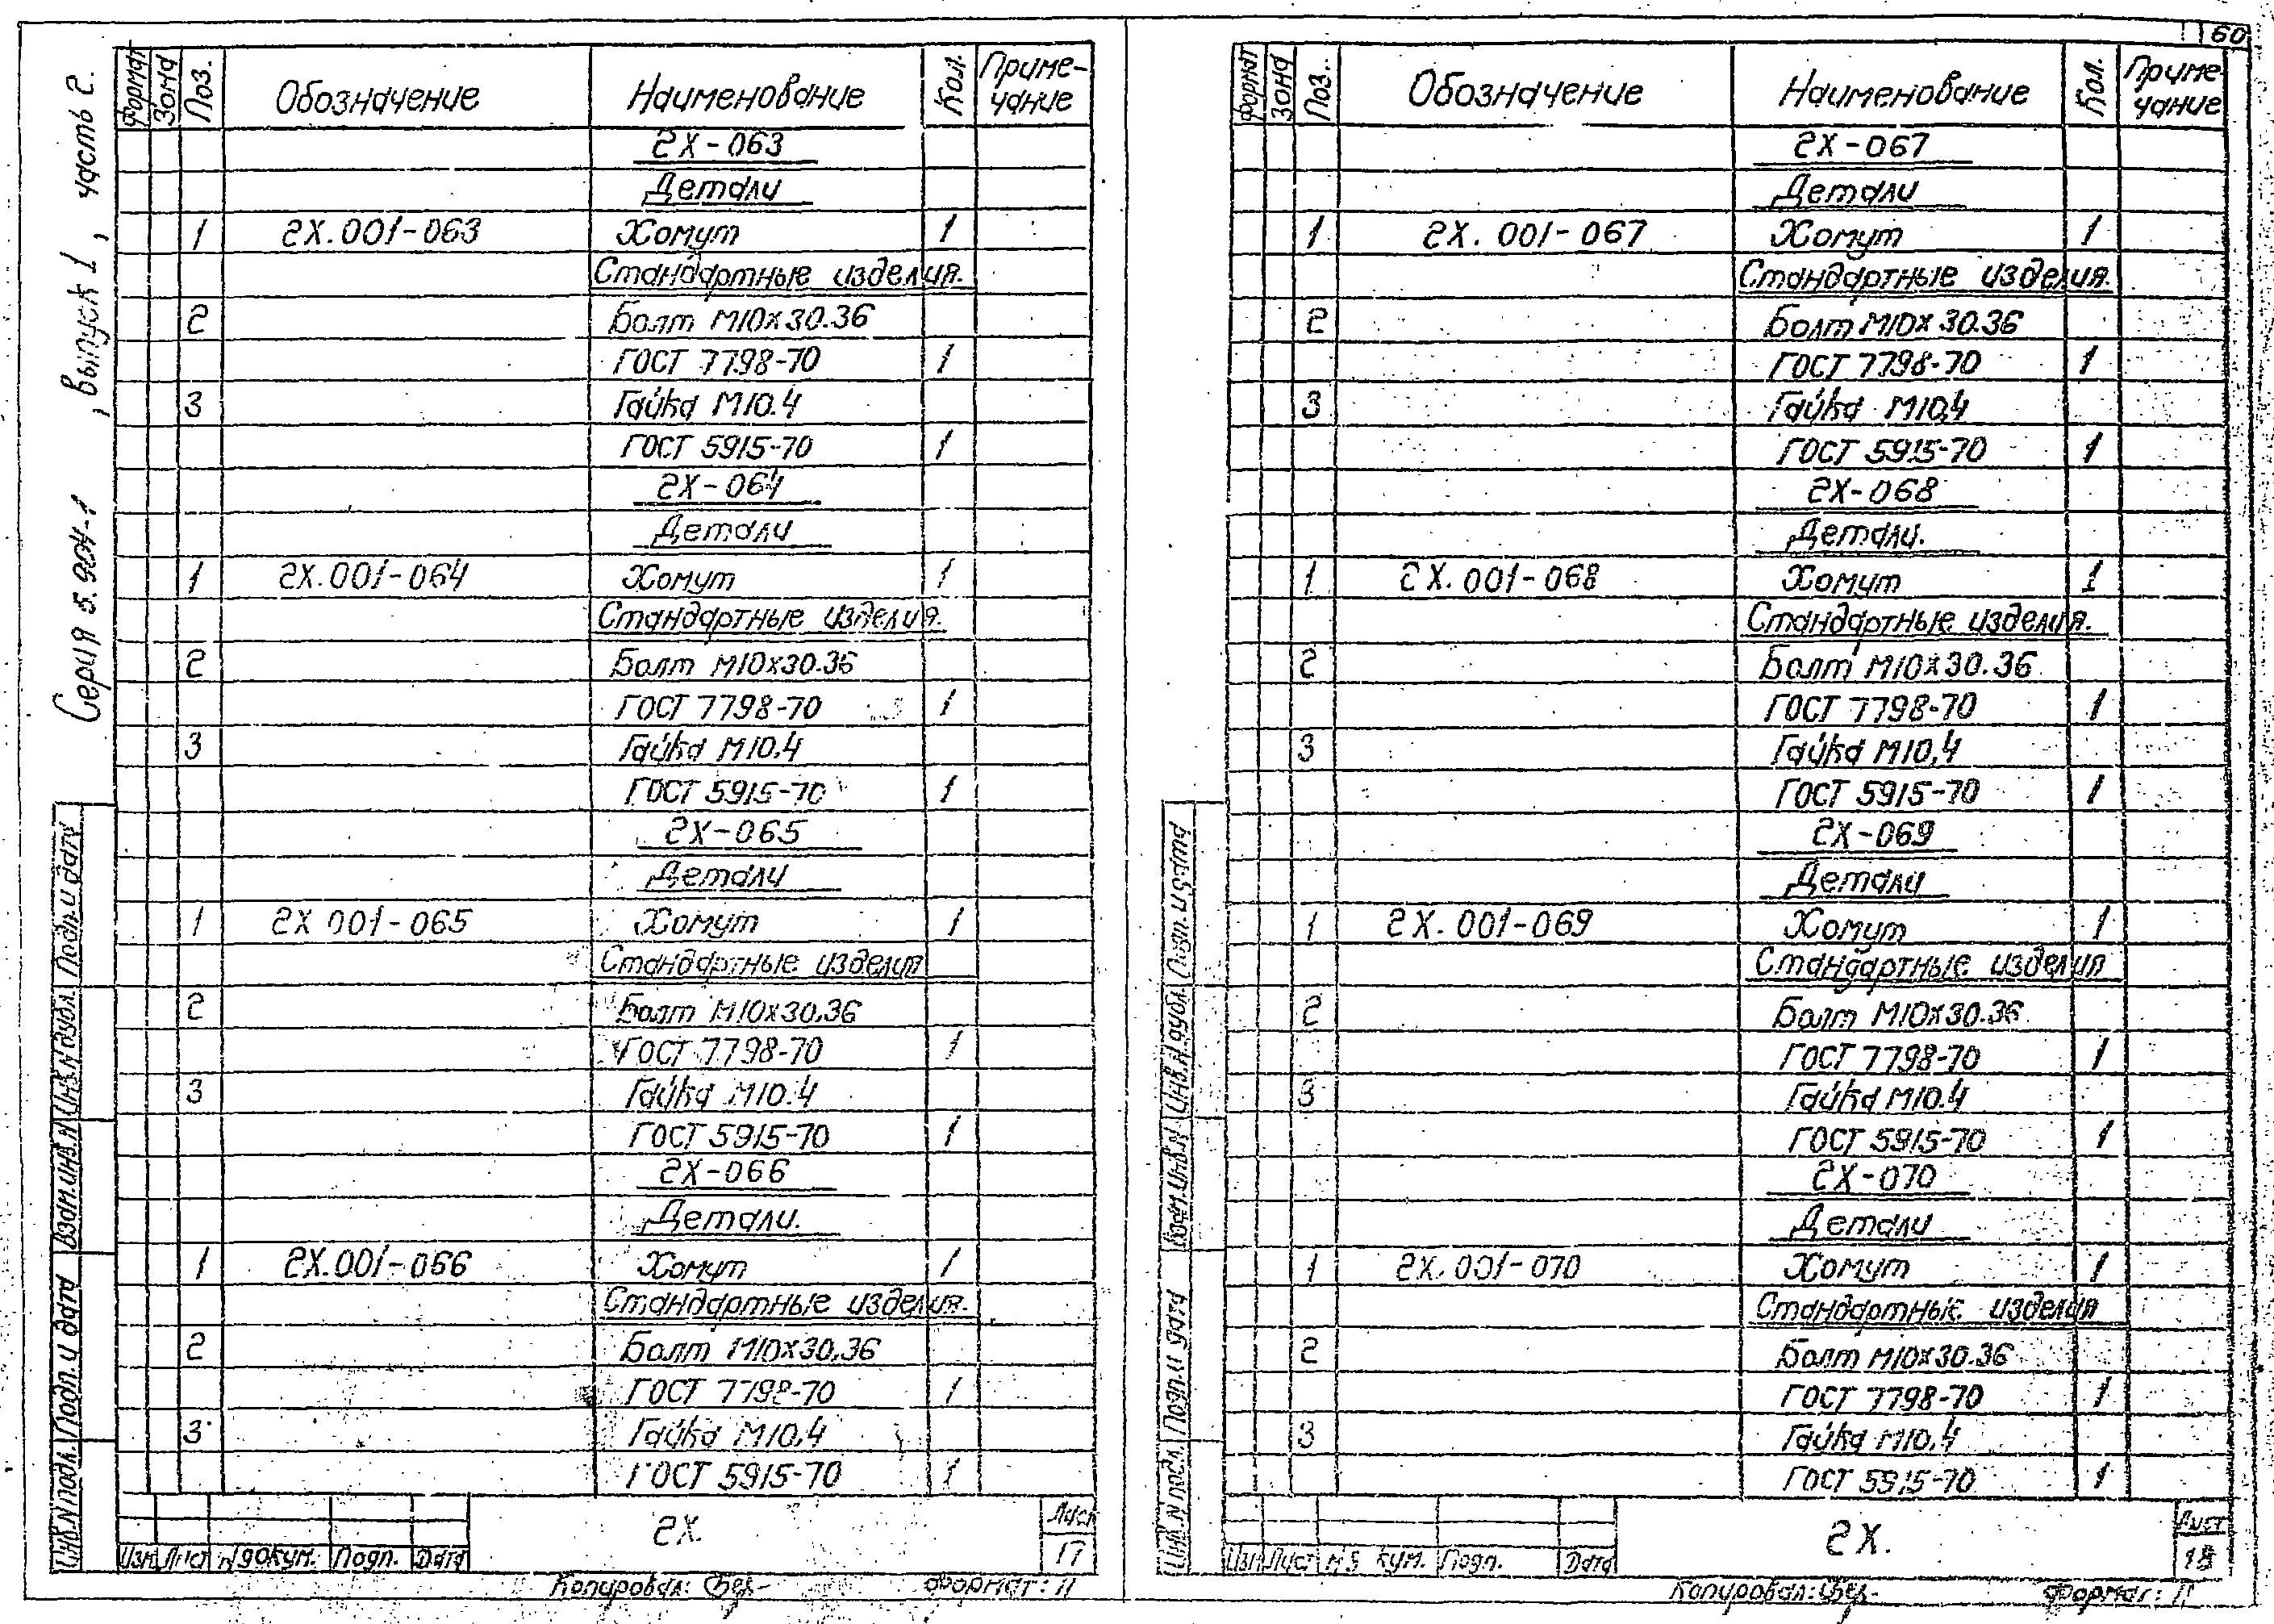 60
Серия 5.904-1 , выпуск 1, часть 2.
Формат Зона Поз. Обозначение Наименование Кол. Приме-
чание
2Х-063
Детали
1 2Х.001-063 Хомут 1
Стандартные изделия.
2 Болт М10х30.36
ГОСТ 7798-70 1
3 Гайка М10.4
ГОСТ 5915-70 1
2Х-064
Детали
1 2Х.001-064 Хомут 1
Стандартные изделия.
2 Болт М10х30.36
ГОСТ 7798-70 1
3 Гайка М10.4
ГОСТ 5915-70 1
2Х-065
Детали
1 2Х 001-065 Хомут 1
Стандартные изделия
2 Болт М10х30.36
ГОСТ 7798-70 1
3 Гайка М10.4
ГОСТ 5915-70 1
2Х-066
Детали.
1 2Х.001-066 Хомут 1
Стандартные изделия.
2 Болт М10х30.36
ГОСТ 7798-70 1
3 Гайка М10.4
ГОСТ 5915-70 1
Инв.N подл. Подп. и дата Взам.инв.N Инв.N дубл. Подп. и дата
2Х.
Лист
17
Изм Лист N докум. Подп. Дата
Копировал: Формат: 11
Формат Зона Поз. Обозначение Наименование Кол. Приме-
чание
2Х-067
Детали
1 2Х.001-067 Хомут 1
Стандартные изделия.
2 Болт М10х30.36
ГОСТ 7798-70 1
3 Гайка М10,4
ГОСТ 5915-70 1
2Х-068
Детали.
1 2Х.001-068 Хомут 1
Стандартные изделия.
2 Болт М10х30.36
ГОСТ 7798-70 1
3 Гайка М10,4
ГОСТ 5915-70 1
2Х-069
Детали
1 2Х.001-069 Хомут 1
Стандартные изделия
2 Болт М10х30.36
ГОСТ 7798-70 1
3 Гайка М10.4
ГОСТ 5915-70 1
2Х-070
Детали
1 2Х.001-070 Хомут 1
Стандартные изделия
2 Болт М10х30.36
ГОСТ 7798-70 1
3 Гайка М10.4
ГОСТ 5915-70 1
Инв.N подл. Подп. и дата Взам.инв.N Инв.N дубл. Подп. и дата
2Х.
Лист
18
Изм Лист Подп. Дата
Копировал: Формат: 11